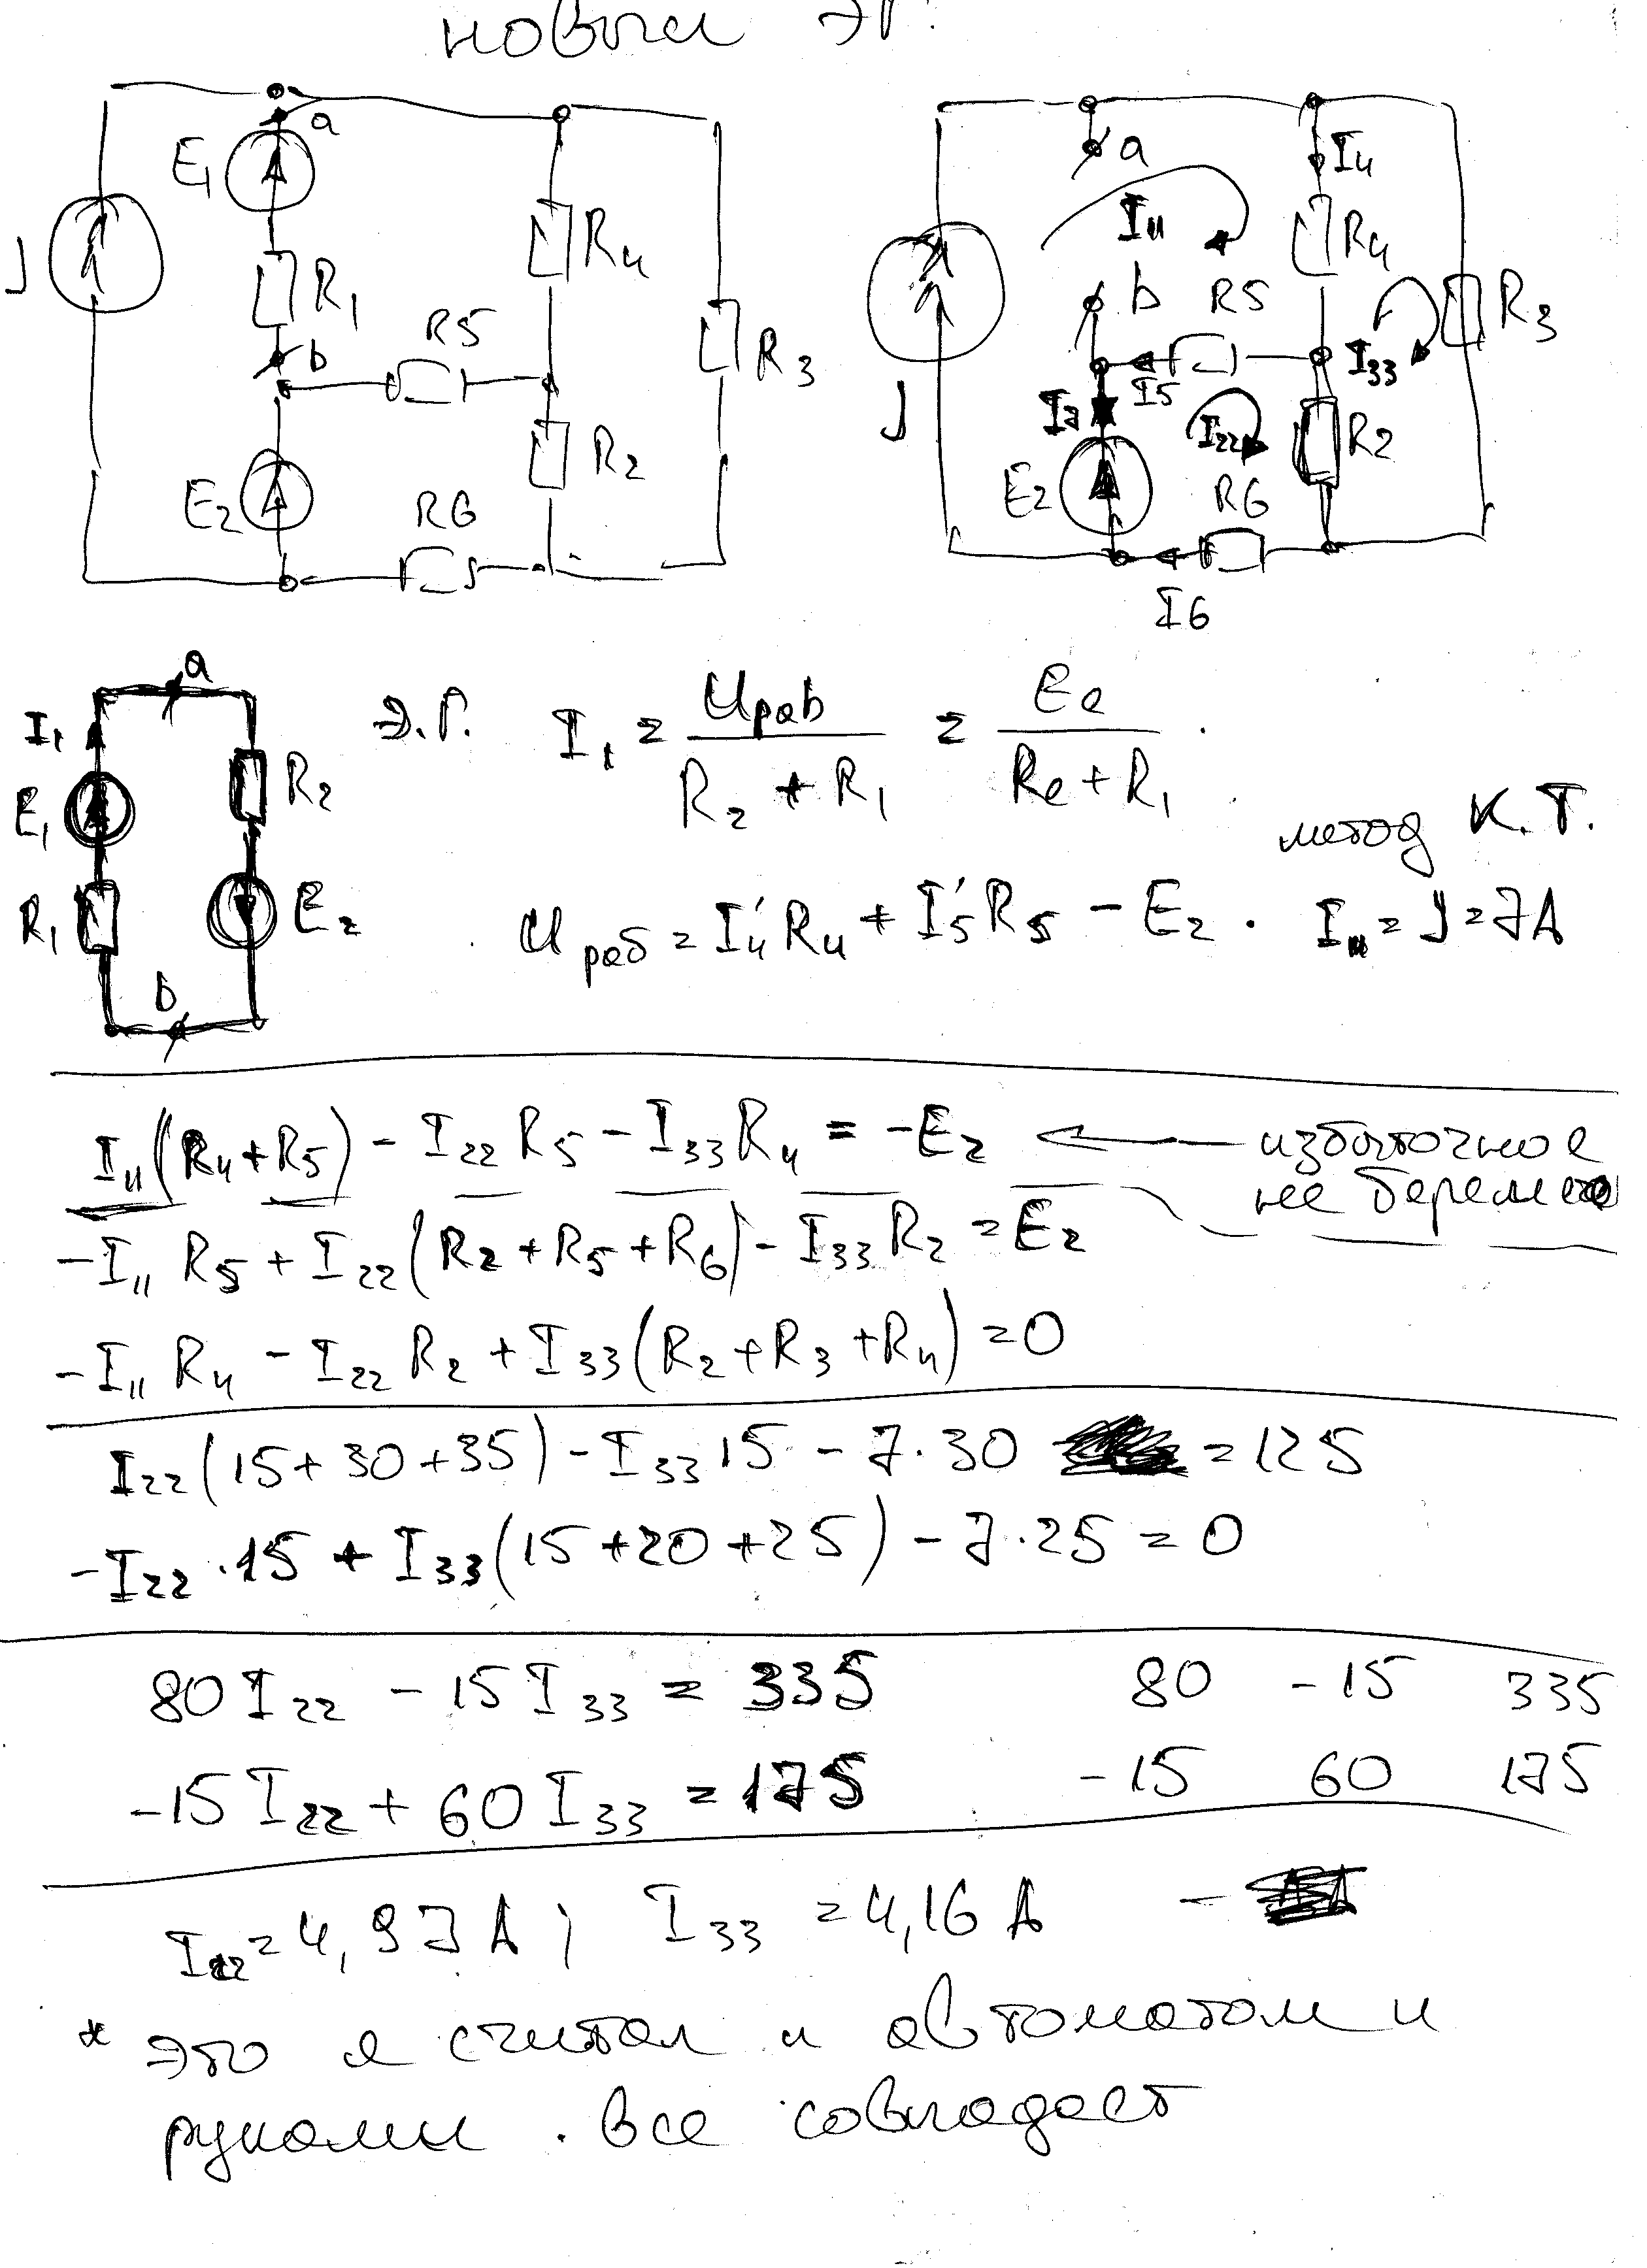 новый ЭГ.
a
E₁
J
R₁
R₄
b
R5
R₃
E₂
R6
R₂
a
I₄
I₁₁
R₄
b
R5
R₃
I₃₃
J
I5
I₂₂
R2
E₂
R6
I6
a
I₁
E₁
R₁
R₂
E₂
b
Э.Г. I₁ = Uраb / (R₂ + R₁) = Eе / (Rе + R₁)
метод К.Т.
U раб = I₄' R₄ + I₅' R₅ - E₂ . I₁₁ = J = 7A
I₁₁(R₄+R₅) - I₂₂ R₅ - I₃₃ R₄ = -E₂ ← избыточное
не берем его
-I₁₁ R₅ + I₂₂(R₂+R₅+R₆) - I₃₃ R₂ = E₂
-I₁₁ R₄ - I₂₂ R₂ + I₃₃(R₂+R₃+R₄) = 0
I₂₂(15+30+35) - I₃₃ 15 - 7·30 = 125
-I₂₂·15 + I₃₃(15+20+25) - 7·25 = 0
80 I₂₂ - 15 I₃₃ = 335 80 -15 335
-15 I₂₂ + 60 I₃₃ = 175 -15 60 175
I₂₂ = 4,97 A ; I₃₃ = 4,16 A
* это я считал и автоматом и
руками. все совпадает